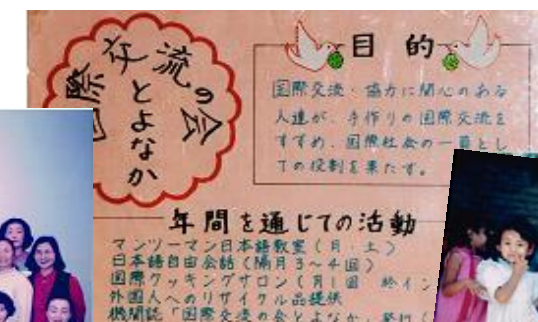 国際交流の会
とよなか
目的
国際交流・協力に関心のある
人達が、手作りの国際交流を
すすめ、国際社会の一員とし
ての役割を果たす。
年間を通じての活動
マンツーマン日本語教室(月・土)
日本語自由会話(隔月3〜4回)
国際クッキングサロン(月1回
外国人へのリサイクル品提供
機関誌「国際交流の会とよなか」発行(